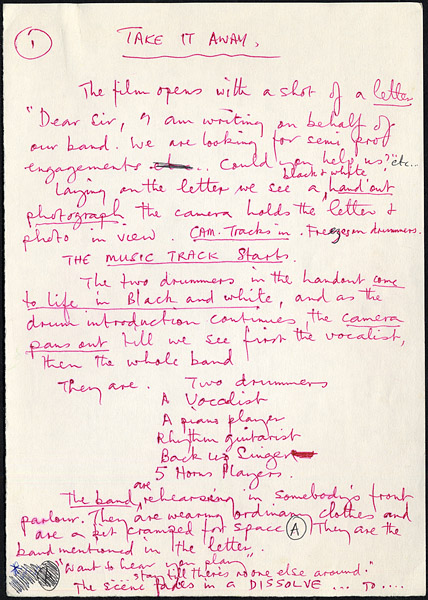 1
TAKE IT AWAY.
The film opens with a shot of a letter
"Dear Sir, I am writing on behalf of
our band. We are looking for semi prof
engagements ... Could you help us? "etc...
black & white
Laying on the letter we see a hand out
photograph the camera holds the letter &
photo in view. CAM. Tracks in. Freeze on drummers.
THE MUSIC TRACK Starts.
The two drummers in the handout come
to life in Black and white, and as the
drum introduction continues the camera
pans out till we see first the vocalist,
then the whole band
They are. Two drummers
A Vocalist
A piano player
Rhythm guitarist
Back up Singer
5 Horns Players.
are
The band, rehearsing in somebody's front
parlour. They are wearing ordinary clothes and
are a bit cramped for space (A) They are the
band mentioned in the letter.
"Want to hear you play
... stay till there's no one else around."
The scene fades in a DISSOLVE ... TO ....